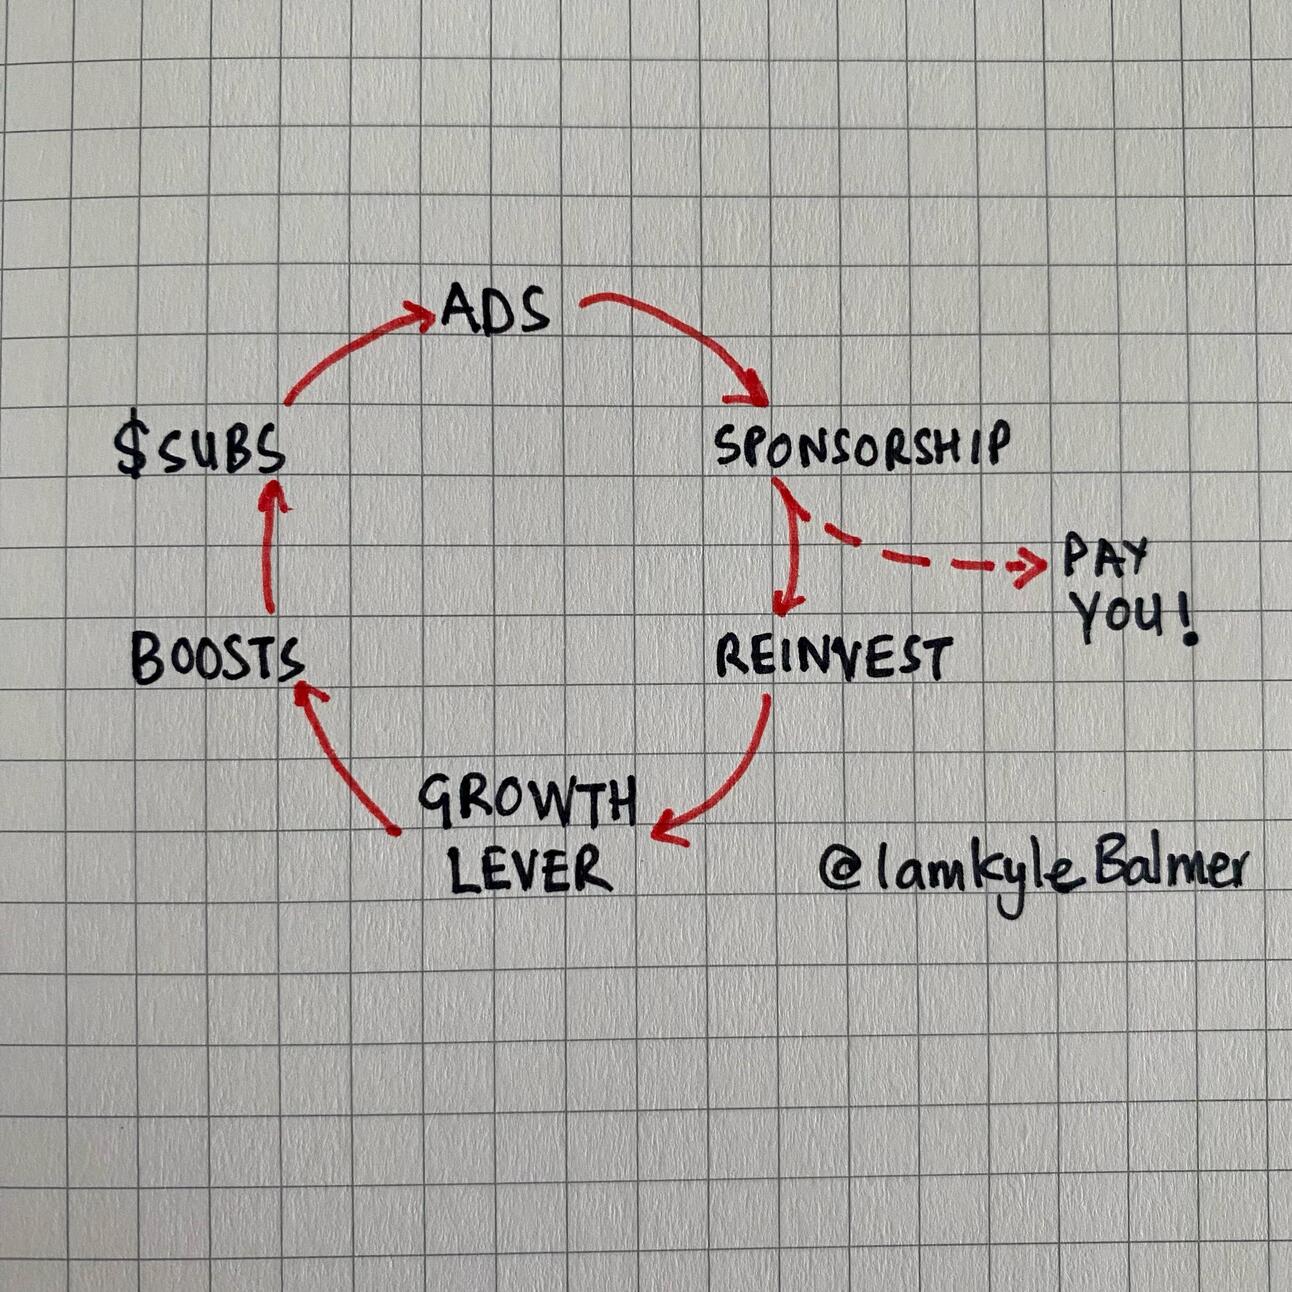 ADS
$SUBS
SPONSORSHIP
PAY
YOU!
BOOSTS
REINVEST
GROWTH
LEVER
@IamkyleBalmer